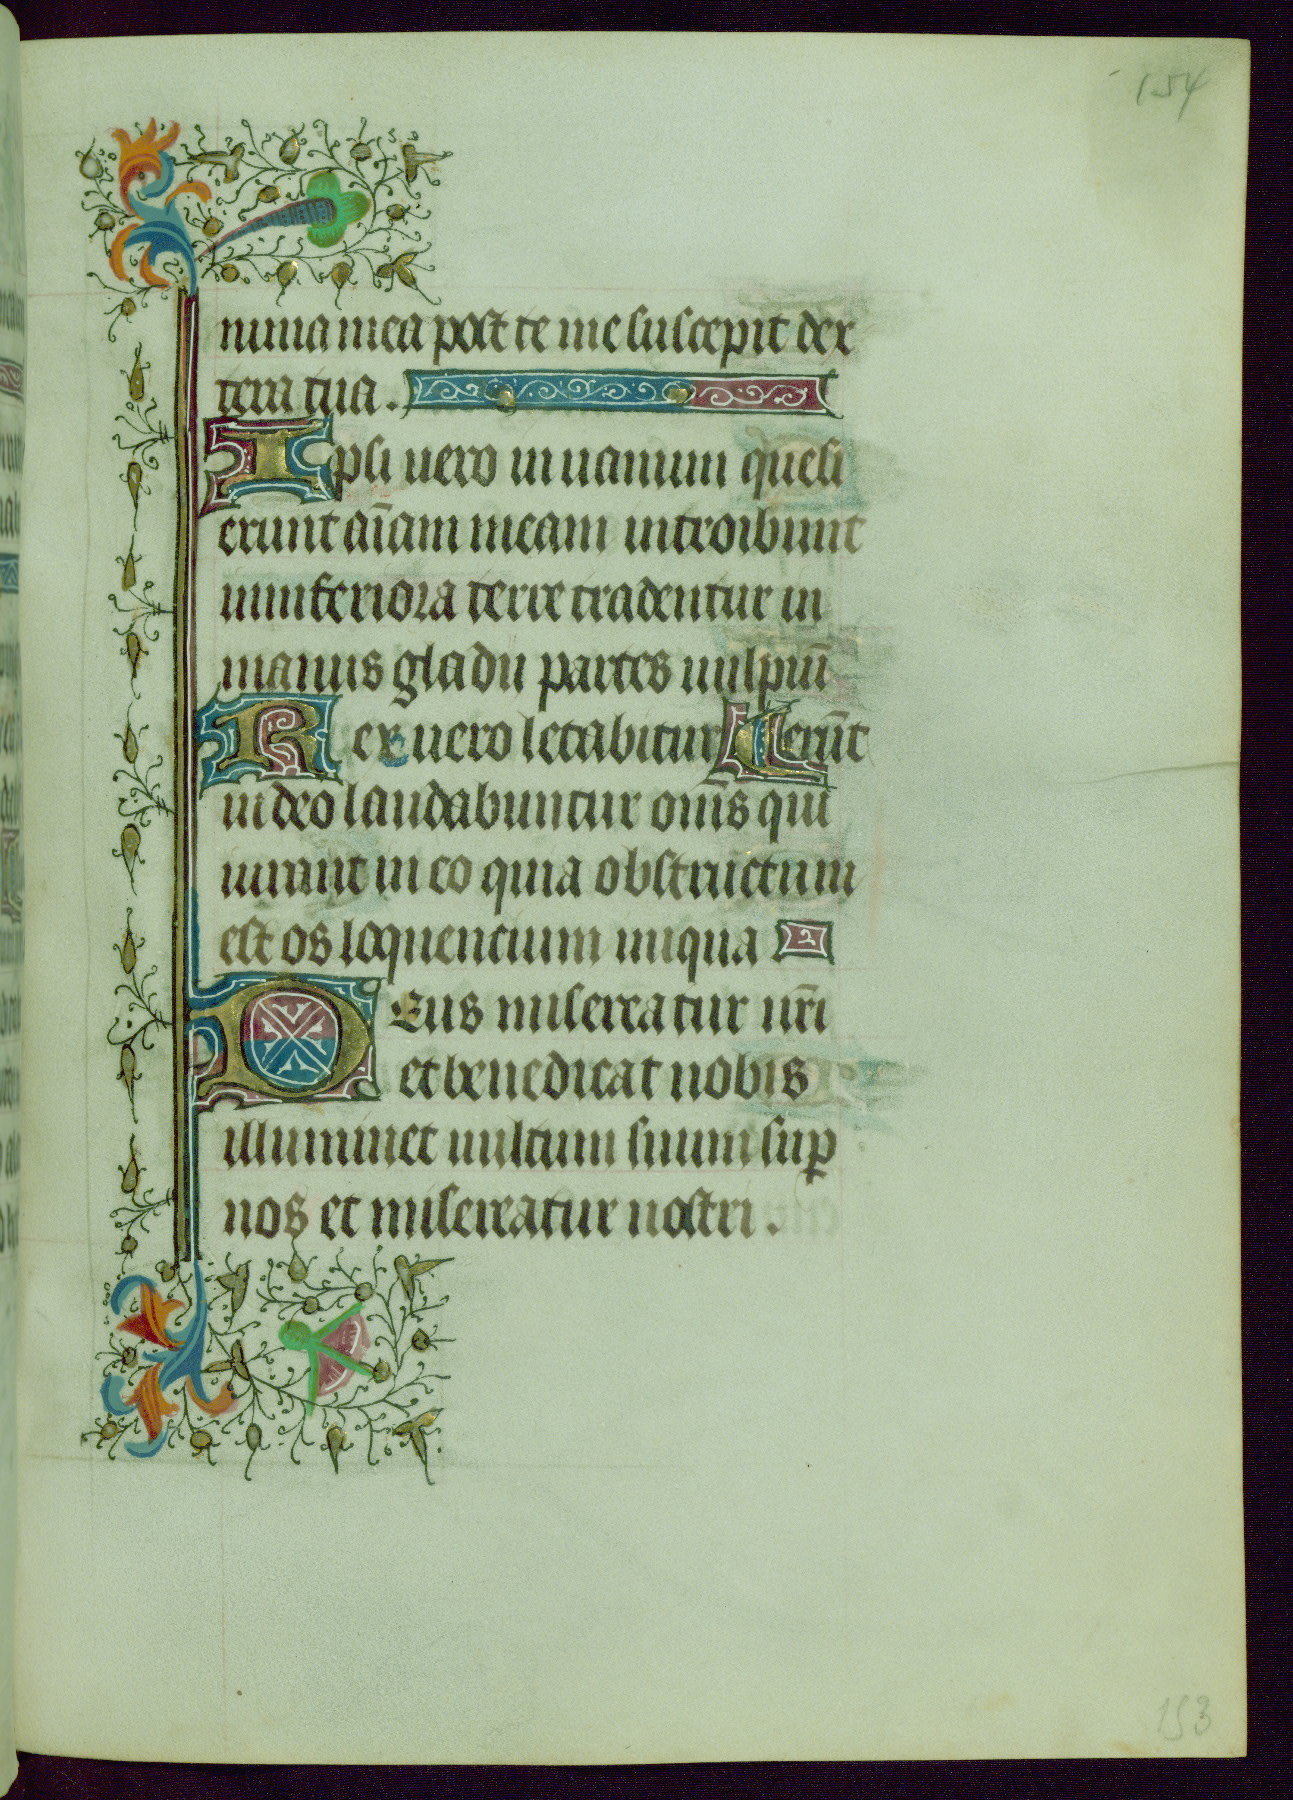 154
nima mea post te me suscepit dex
tera tua.
Ipsi uero in uanum quesi
erunt aīam meam introibunt
in inferiora terre tradentur in
manus gladii partes uulpiū
Rex uero letabitur Lerūt
in deo laudabuntur om̄s qui
iurant in eo quia obstructum
est os loquencium iniqua
Deus misereatur nr̄i
et benedicat nobis
illuminet uultum suum sup
nos et misereatur nostri.
153